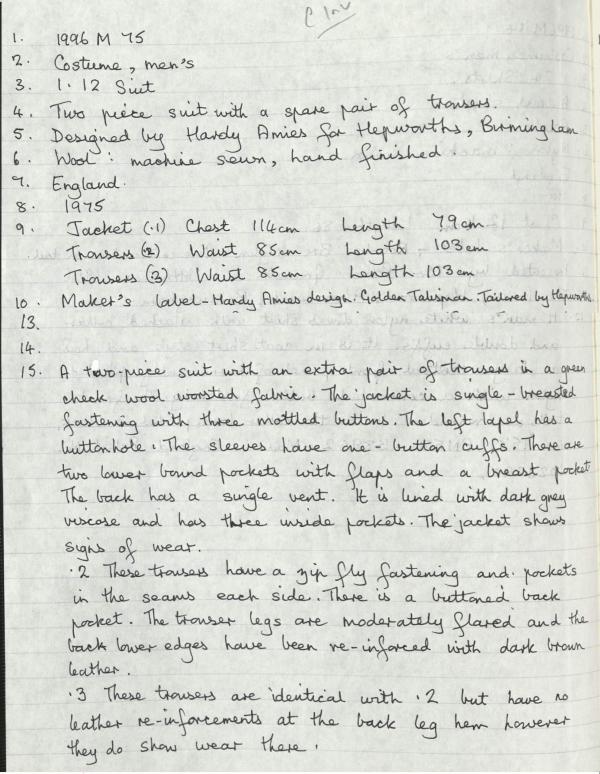 C Inv
1. 1996 M 75
2. Costume, men's
3. 1.12 Suit
4. Two piece suit with a spare pair of trousers.
5. Designed by Hardy Amies for Hepworths, Birmingham
6. Wool: machine sewn, hand finished.
7. England.
8. 1975
9. Jacket (.1) Chest 114cm Length 79cm
Trousers (2) Waist 85cm Length 103cm
Trousers (3) Waist 85cm Length 103cm
10. Maker's label-Hardy Amies design. Golden Talisman. Tailored by Hepworths
13.
14.
15. A two-piece suit with an extra pair of trousers in a green
check wool worsted fabric. The jacket is single-breasted
fastening with three mottled buttons. The left lapel has a
buttonhole. The sleeves have one-button cuffs. There are
two lower bound pockets with flaps and a breast pocket
The back has a single vent. It is lined with dark grey
viscose and has three inside pockets. The jacket shows
signs of wear.
.2 These trousers have a zip fly fastening and pockets
in the seams each side. There is a buttoned back
pocket. The trouser legs are moderately flared and the
back lower edges have been re-inforced with dark brown
leather.
.3 These trousers are identical with .2 but have no
leather re-inforcements at the back leg hem however
they do show wear there.